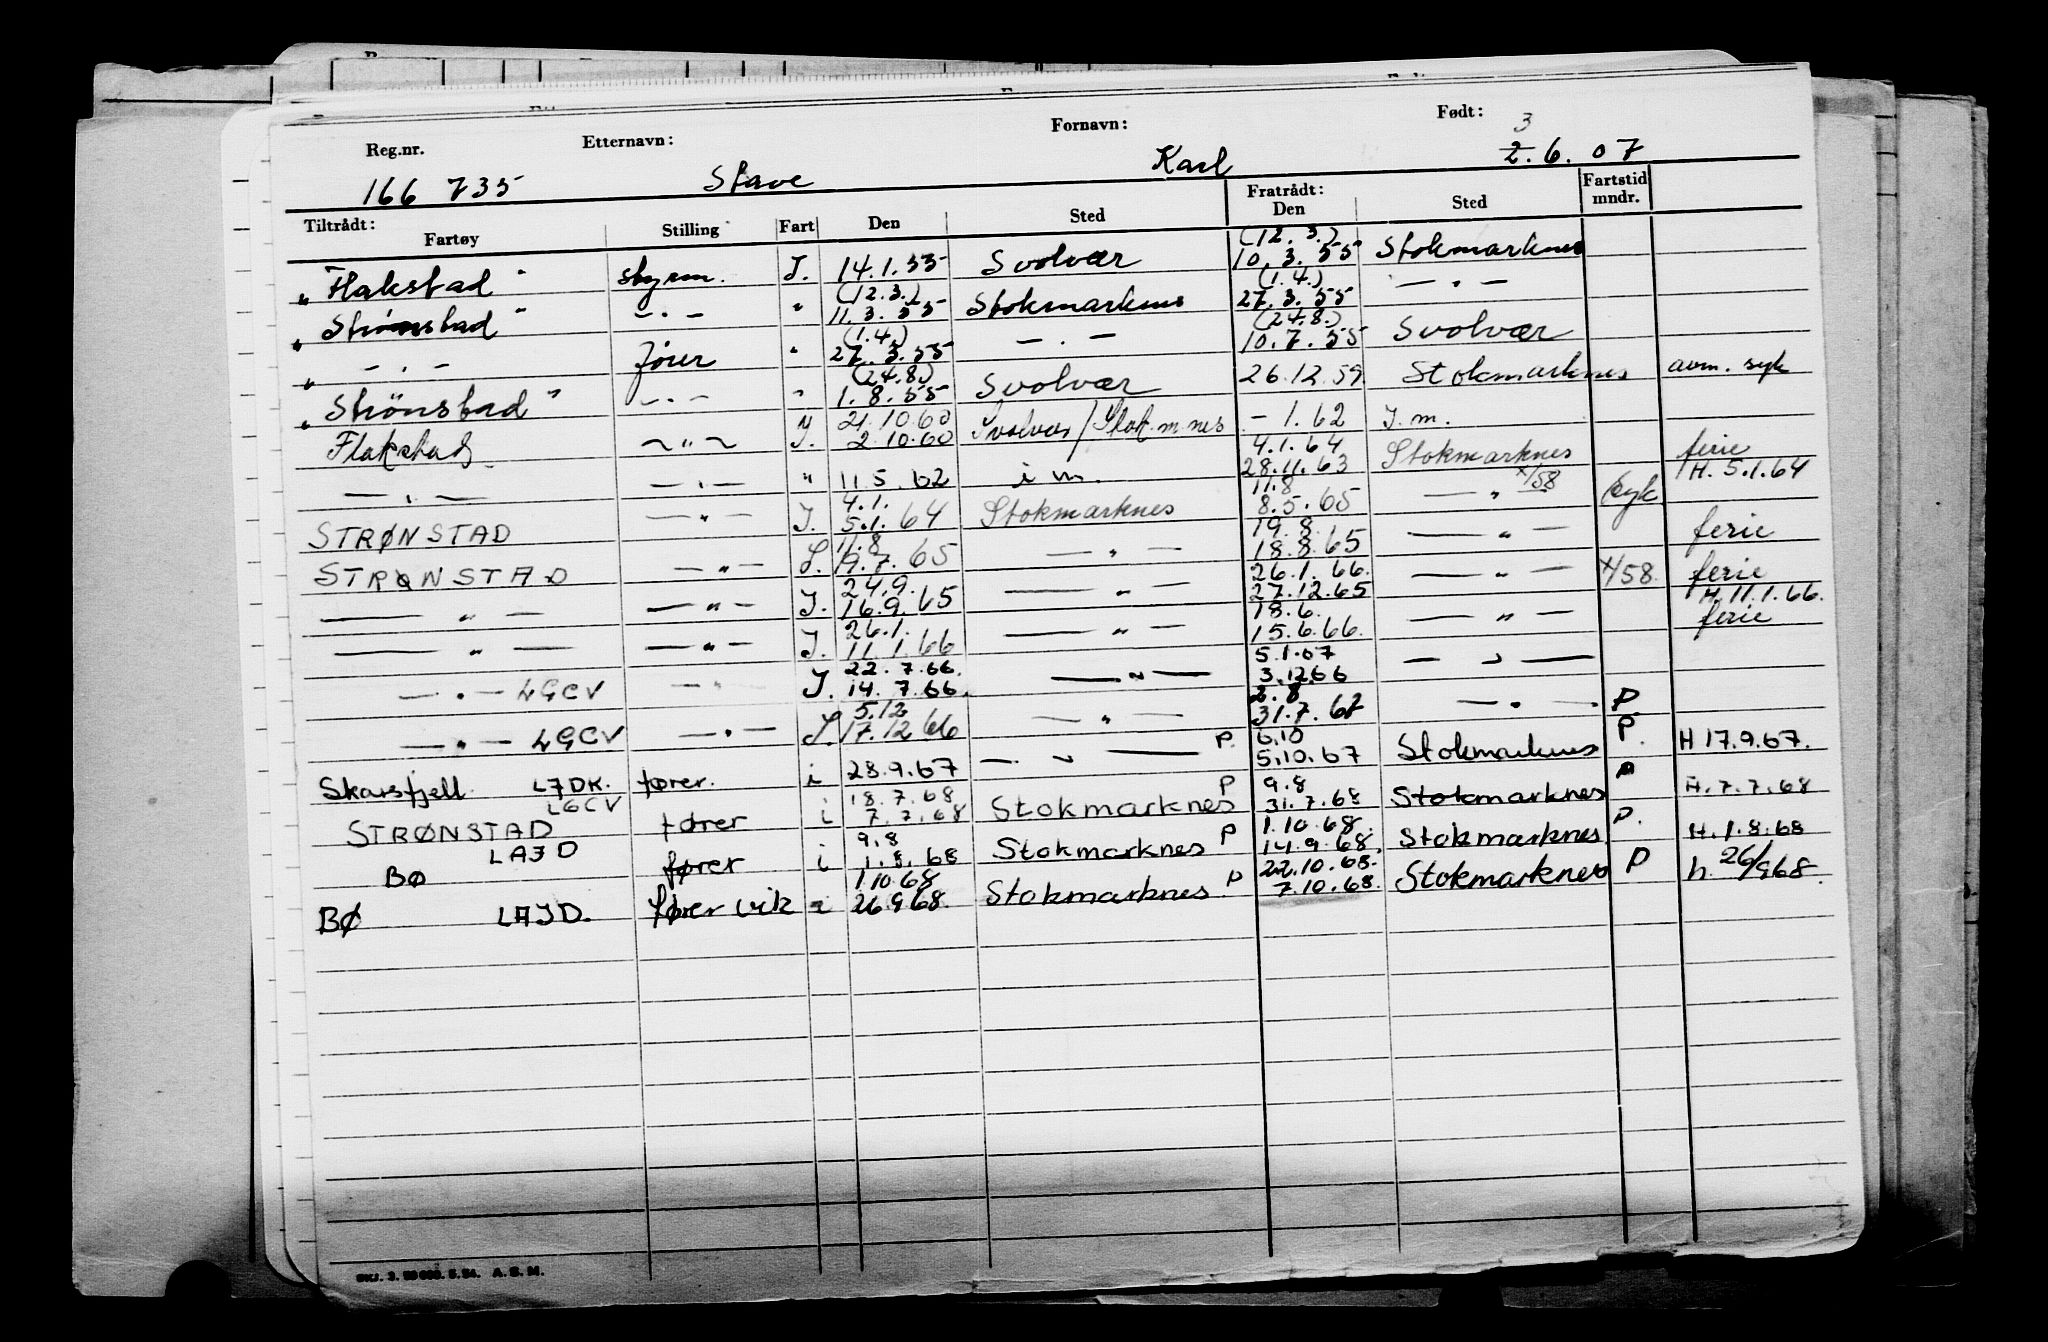 Reg.nr. Etternavn: Fornavn: Født:
166 735 Stave Karl 3 2.6.07
Tiltrådt: Fratrådt: Fartstid
Fartøy Stilling Fart Den Sted Den Sted mndr.
(12.3.)
"Flakstad" styrm. I. 14.1.55 Svolvær 10.3.55 Stokmarknes
(12.3.) (1.4.)
"Strønstad" — " — " 11.3.55 Stokmarknes 27.3.55 — " —
(1.4.) (24.8.)
" — " — fører " 27.3.55 — " — 10.7.55 Svolvær
(24.8.)
"Strønstad" — " — " 1.8.55 Svolvær 26.12.59 Stokmarknes avm. syk
21.10.60
Flakstad — " — I. 2.10.60 Svolvær/Stok.m.nes - 1.62 I.m.
4.1.64 ferie
— " — — " — " 11.5.62 i m. 28.11.63 Stokmarknes H. 5.1.64
4.1. 11.8 x/58
STRØNSTAD — " — I. 5.1.64 Stokmarknes 8.5.65 — " — syk
11.8 19.8
STRØNSTAD — " — I. 19.7.65 — " — 18.8.65 — " — ferie
24.9. 26.1.66.
— " — — " — I. 16.9.65 — " — 27.12.65 — " — x/58. ferie
H. 11.1.66.
26.1. 18.6.
— " — — " — I. 11.1.66 — " — 15.6.66. — " — ferie
22.7.66. 5.1.67
— " — LGCV — " — I. 14.7.66. — " — 3.12.66 — " —
5.12 2.8.
— " — LGCV — " — I. 17.12.66 — " — 31.7.67 — " — P
6.10
Skarsfjell LJDK. fører. i 28.9.67 — " — P. 5.10.67 Stokmarknes P. H 17.9.67.
LGCV 18.7.68 9.8
STRØNSTAD fører i 7.7.68 Stokmarknes P 31.7.68 Stokmarknes P H. 7.7.68
LAJD 9.8 1.10.68.
BØ fører i 1.8.68 Stokmarknes P 14.9.68. Stokmarknes P. H. 1.8.68
1.10.68 22.10.68.
BØ LAJD. fører vik i 26.9.68. Stokmarknes P 7.10.68. Stokmarknes P h. 26/9.68.
A. S. M.